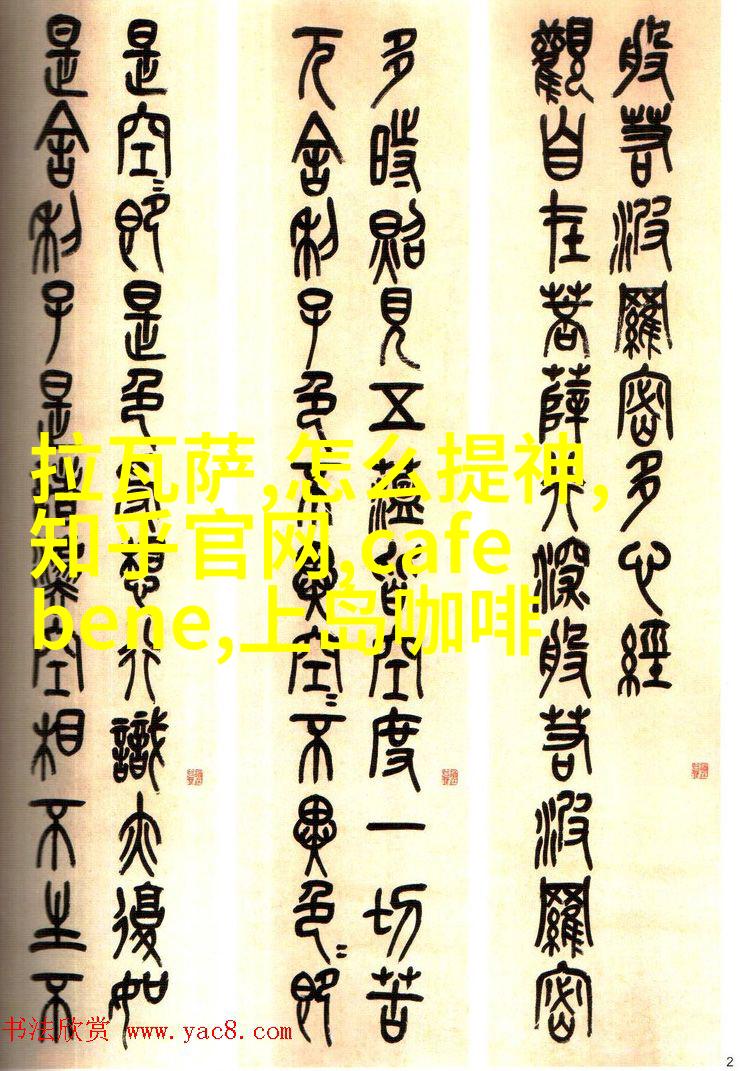 般若波羅密多心經
觀自在菩薩行深般若波羅密
多時照見五蘊皆空度一切苦
厄舍利子色不異空〻不異色〻即
是空〻即是色受想行識亦復如
是舍利子是諸法空相不生不
拉瓦萨,怎么提神,
知乎官网,cafe
bene,上岛咖啡
书法欣赏 www.yac8.com
2